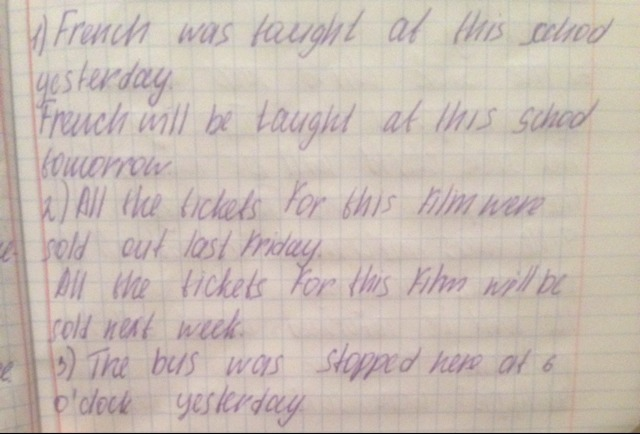 1) French was taught at this school
yesterday.
French will be taught at this school
tomorrow
2) All the tickets for this film were
sold out last Friday.
All the tickets for this film will be
sold next week.
3) The bus was stopped here at 6
o'clock yesterday